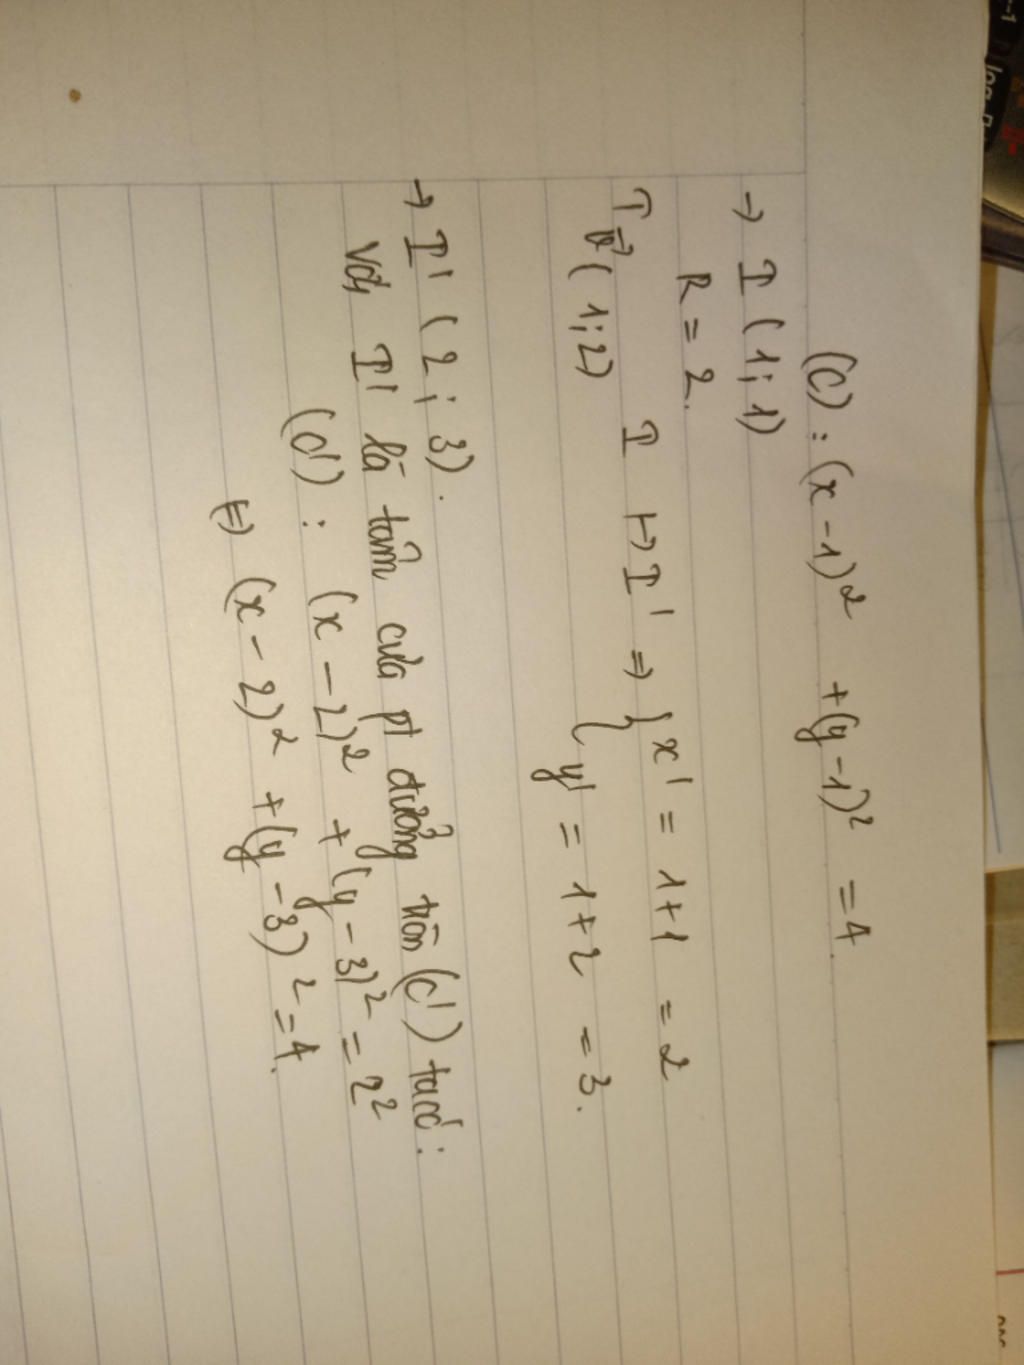 (C) : (x - 1)² + (y - 1)² = 4.
→ I (1; 1)
R = 2.
T v⃗ (1; 2) I ↦ I' ⇒ { x' = 1 + 1 = 2
y' = 1 + 2 = 3.
→ I' (2 ; 3).
Với I' là tâm của pt đường tròn (C') ta có :
(C') : (x - 2)² + (y - 3)² = 2²
⇔ (x - 2)² + (y - 3)² = 4.